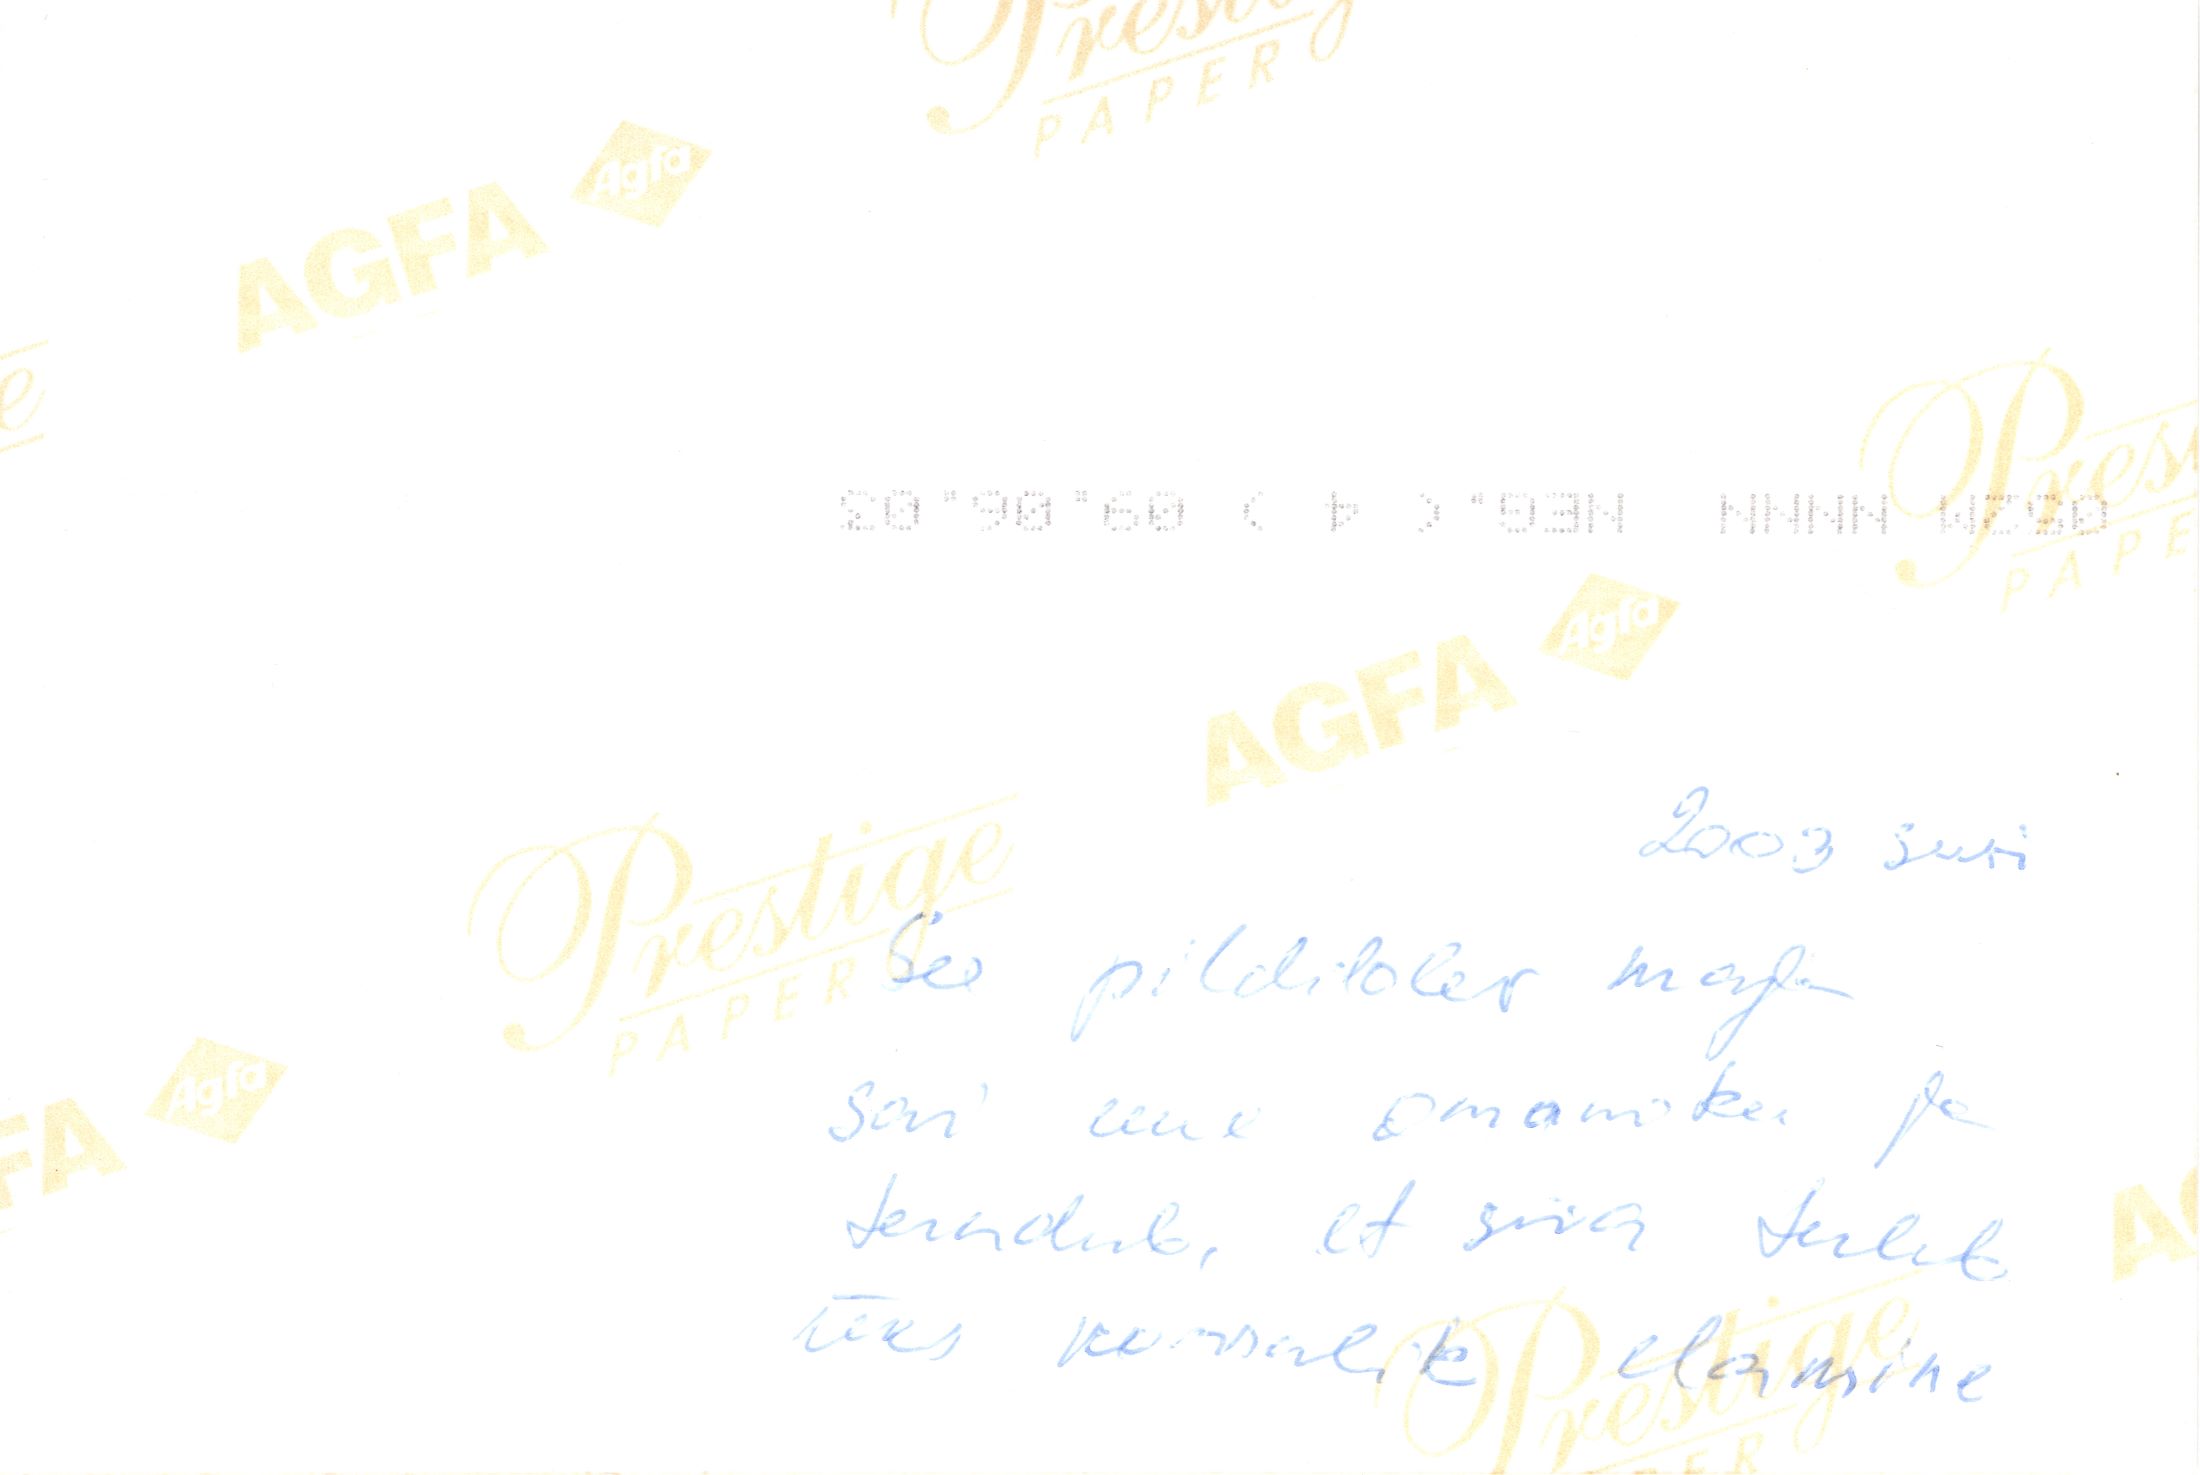 Prestige
PAPER
Agfa
AGFA
e
Prestige
PAPE
NNNN
Agfa
AGFA
2003 suvi
Prestige
PAPER
See pildiloler maja
Agfa
FA
sai uue omaniku ja
teadub, et siia tuleb
üks korralik elamine
Prestige
PER
A